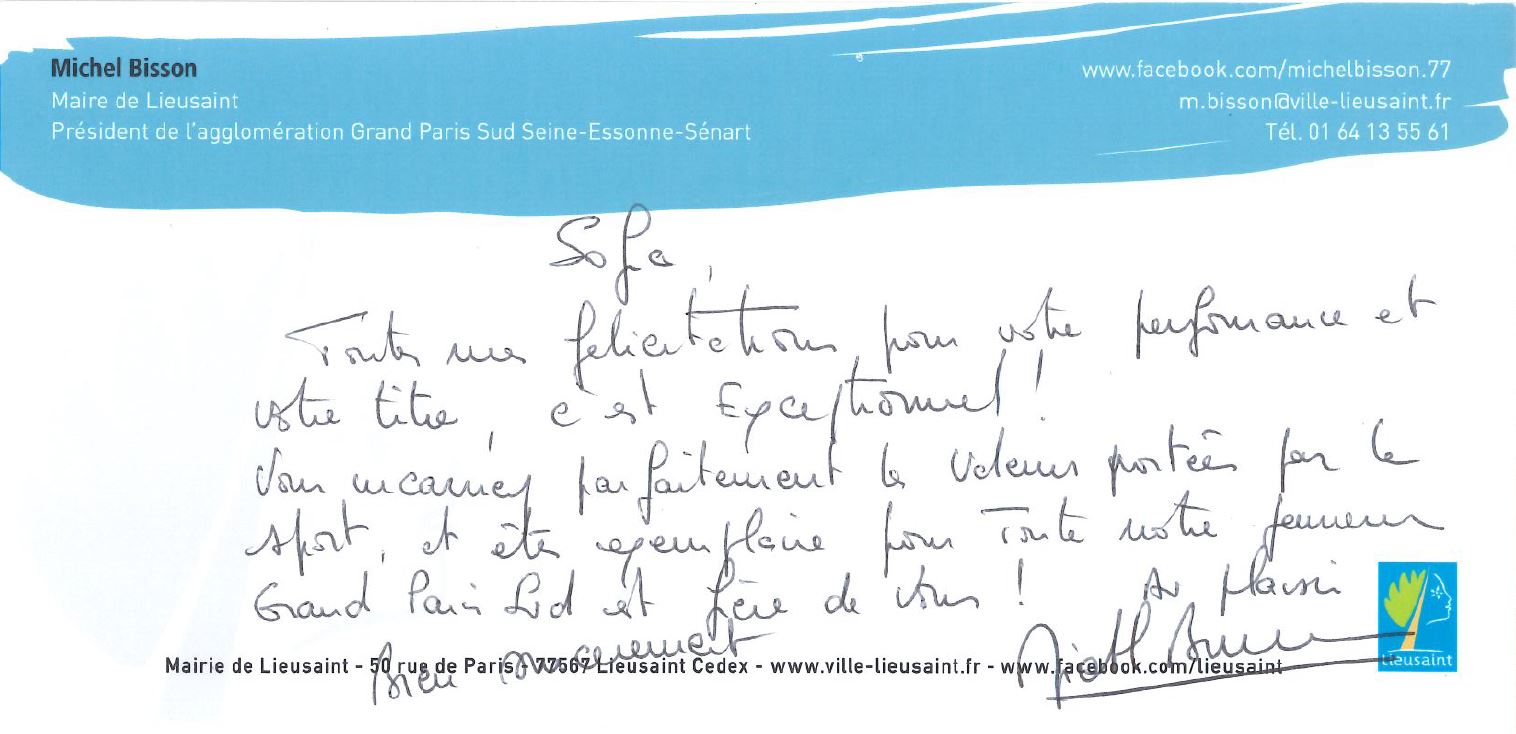 Michel Bisson
Maire de Lieusaint
Président de l'agglomération Grand Paris Sud Seine-Essonne-Sénart
www.facebook.com/michelbisson.77
m.bisson@ville-lieusaint.fr
Tél. 01 64 13 55 61
Sofa,
Toutes mes félicitations pour votre performance et
votre titre, c'est Exceptionnel !
Vous incarnez parfaitement les valeurs portées par le
sport, et êtes exemplaire pour toute notre jeunesse
Grand Paris Sud est fière de vous ! Au plaisir
Bien sincèrement
Mairie de Lieusaint - 50 rue de Paris - 77567 Lieusaint Cedex - www.ville-lieusaint.fr - www.facebook.com/lieusaint
Lieusaint